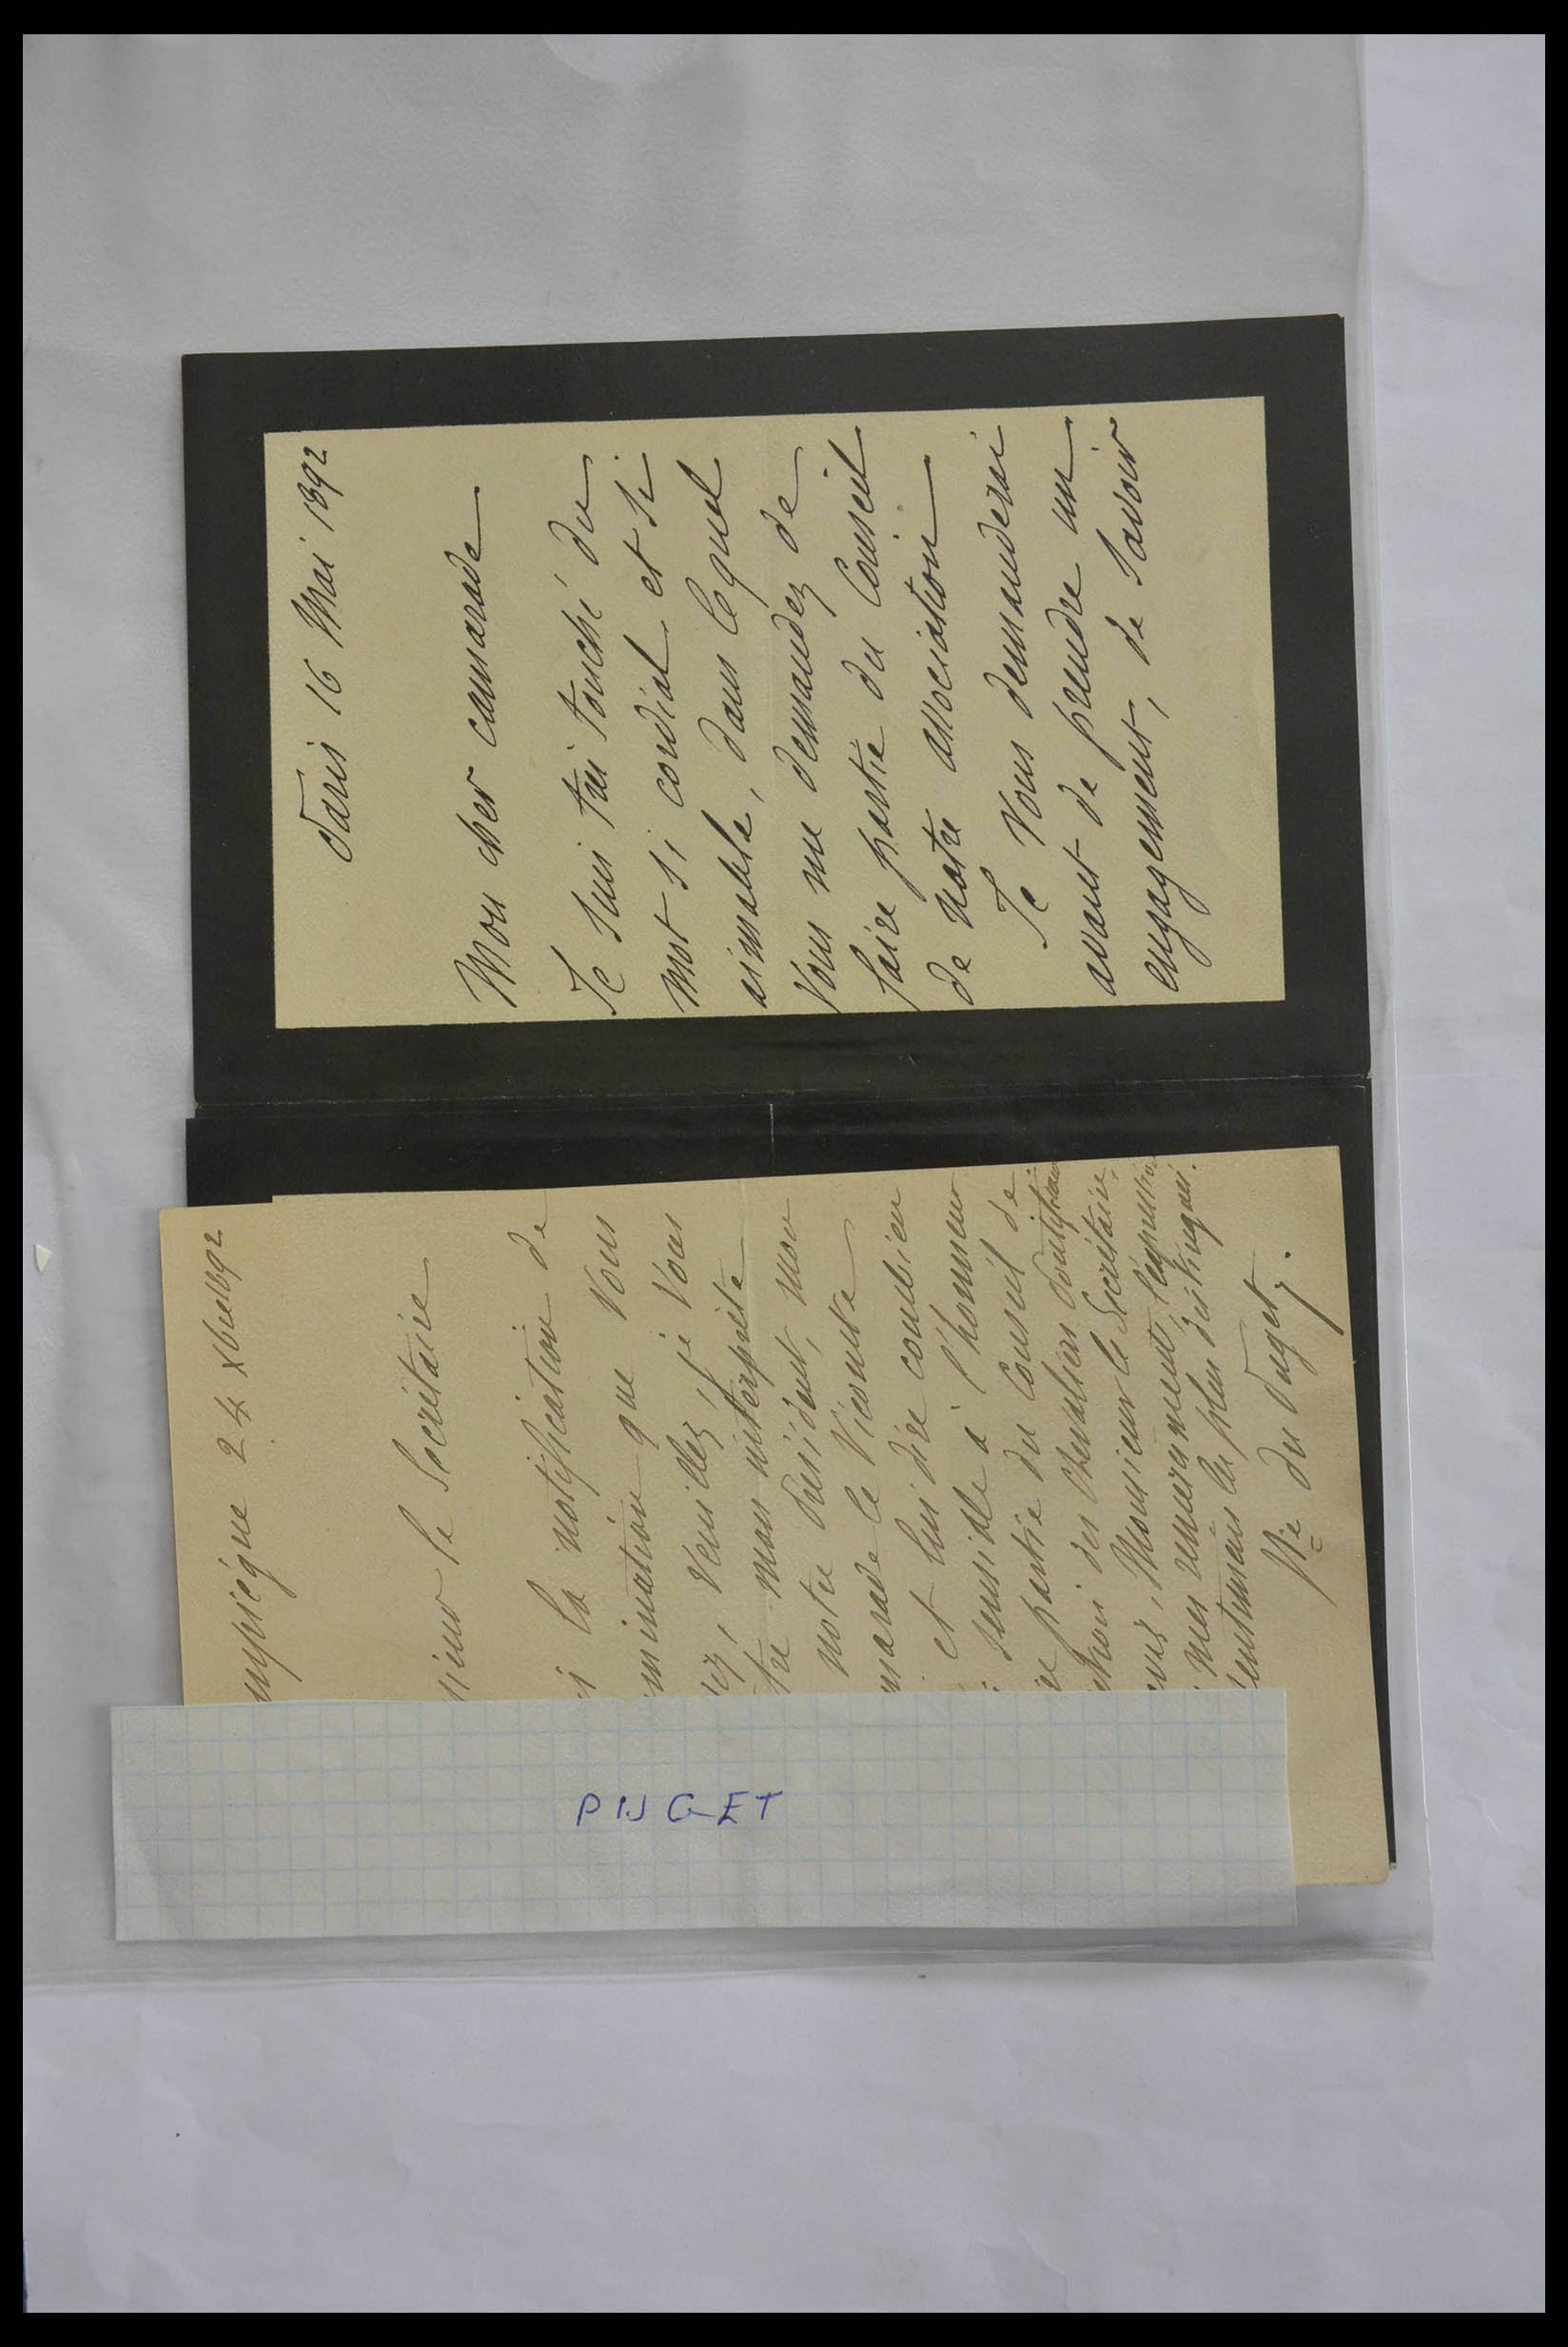 Paris 16 Mai 1892
Mon cher camarade
Je suis très touché du
mot si cordial et si
aimable, dans lequel
vous me demandez de
faire partie du Conseil
de notre association
Je vous demanderai
avant de prendre un
engagement, de savoir
mpiègne 24 Xbre 1892
sieur le Secrétaire
la notification de
mination que vous
ez, veuillez, je vous
tre mon interprète
notre Président, mon
marade le Vicomte
et lui dire combien
sensible à l'honneur
re partie du Conseil de
des Chevaliers Pontificaux
Monsieur le Secrétaire,
mes remerciements, l'expression
sentiments les plus distingués.
Vte du Puget.
PUGET